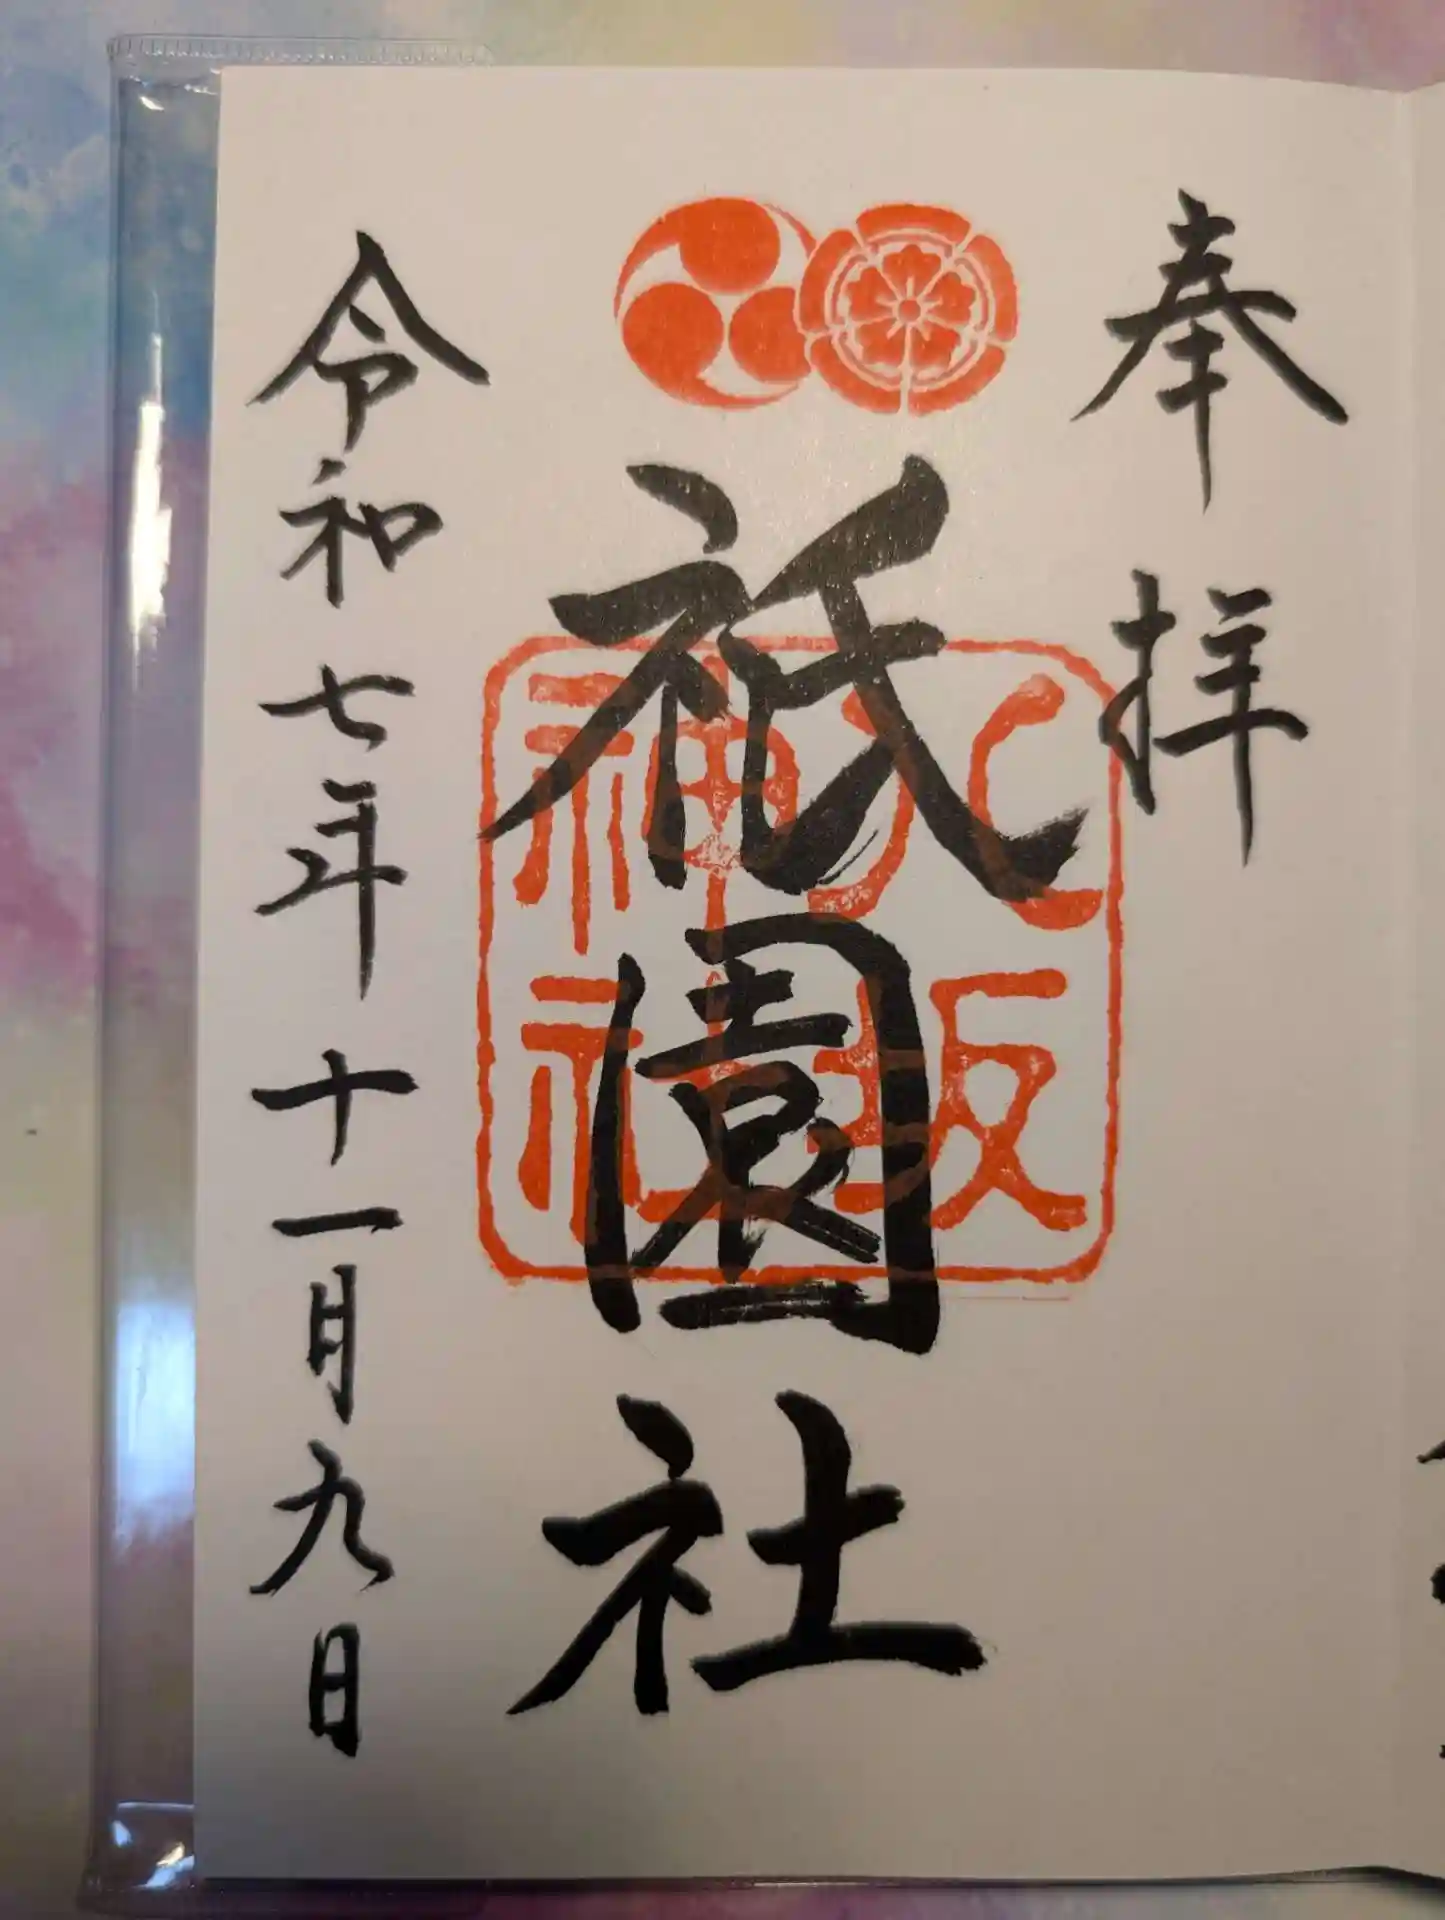 奉拝
祇園社
八坂
神社
令和七年十一月九日